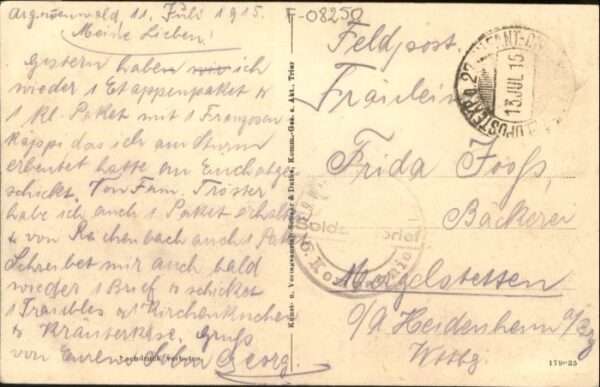 Argonnenwald, 11. Juli 1915.
Meine Lieben!
Gestern haben wir ich
wieder 1 Etappenpaket &
1 kl. Paket mit 1 Franzosen
kappi das ich am Sturm
erbeutet hatte an Euch abge
schickt. Von Fam. Tröster
habe ich auch 1 Paket erhalten
& von Rachenbach auch 1 Paket
Schreibet mir auch bald
wieder 1 Brief & schicket
1 Träubles & 1 Kirschenkuchen
& Kräuterkäse. Gruß
von Eurem Sohn Georg.
F-08250
Feldpost.
Fräulein
Frida Jooß,
Bäckerei
Mergelstetten
O/A Heidenheim a/Bz
Wttbg.
13 JUL 15
Soldatenbrief
Kunst- u. Verlagsanstalt Schaar & Dathe, Komm.-Ges. a. Akt., Trier
179-35